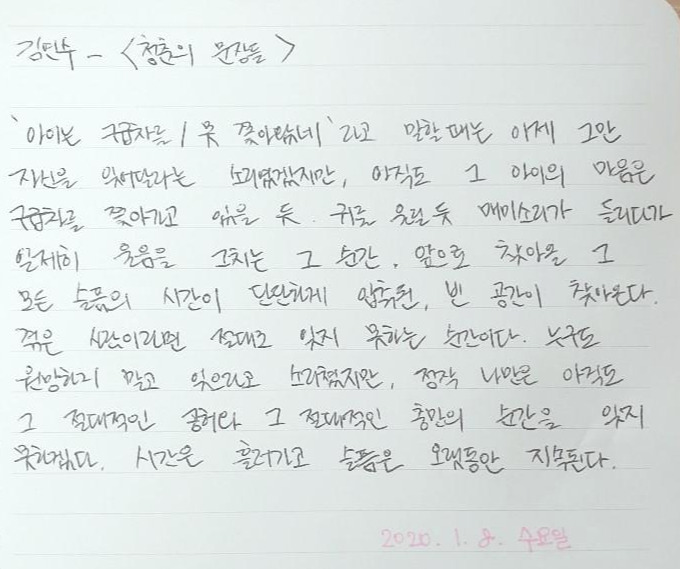 김연수 - <청춘의 문장들>
'아이는 구급차를 / 못 쫓아왔네'라고 말할 때는 이제 그만
자신을 잊어달라는 소리였겠지만, 아직도 그 아이의 마음은
구급차를 쫓아가고 있을 듯. 귀를 울릴 듯 매미소리가 들리다가
일제히 울음을 그치는 그 순간, 앞으로 찾아올 그
모든 슬픔의 시간이 단단하게 압축된, 빈 공간이 찾아온다.
겪은 사람이라면 절대로 잊지 못하는 순간이다. 누구도
원망하지 말고 잊으라고 소리쳤지만, 정작 나만은 아직도
그 절대적인 공허와 그 절대적인 충만의 순간을 잊지
못하겠다. 시간은 흘러가고 슬픔은 오랫동안 지속된다.
2020. 1. 8. 수요일